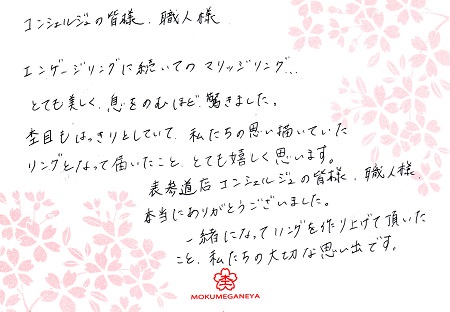 コンシェルジュの皆様、職人様
エンゲージリングに続いてのマリッジリング...
とても美しく、息をのむほど驚きました。
杢目もはっきりとしていて、私たちの思い描いていた
リングとなって届いたこと、とても嬉しく思います。
表参道店コンシェルジュの皆様、職人様、
本当にありがとうございました。
一緒になってリングを作り上げて頂いた
こと、私たちの大切な思い出です。
MOKUMEGANEYA